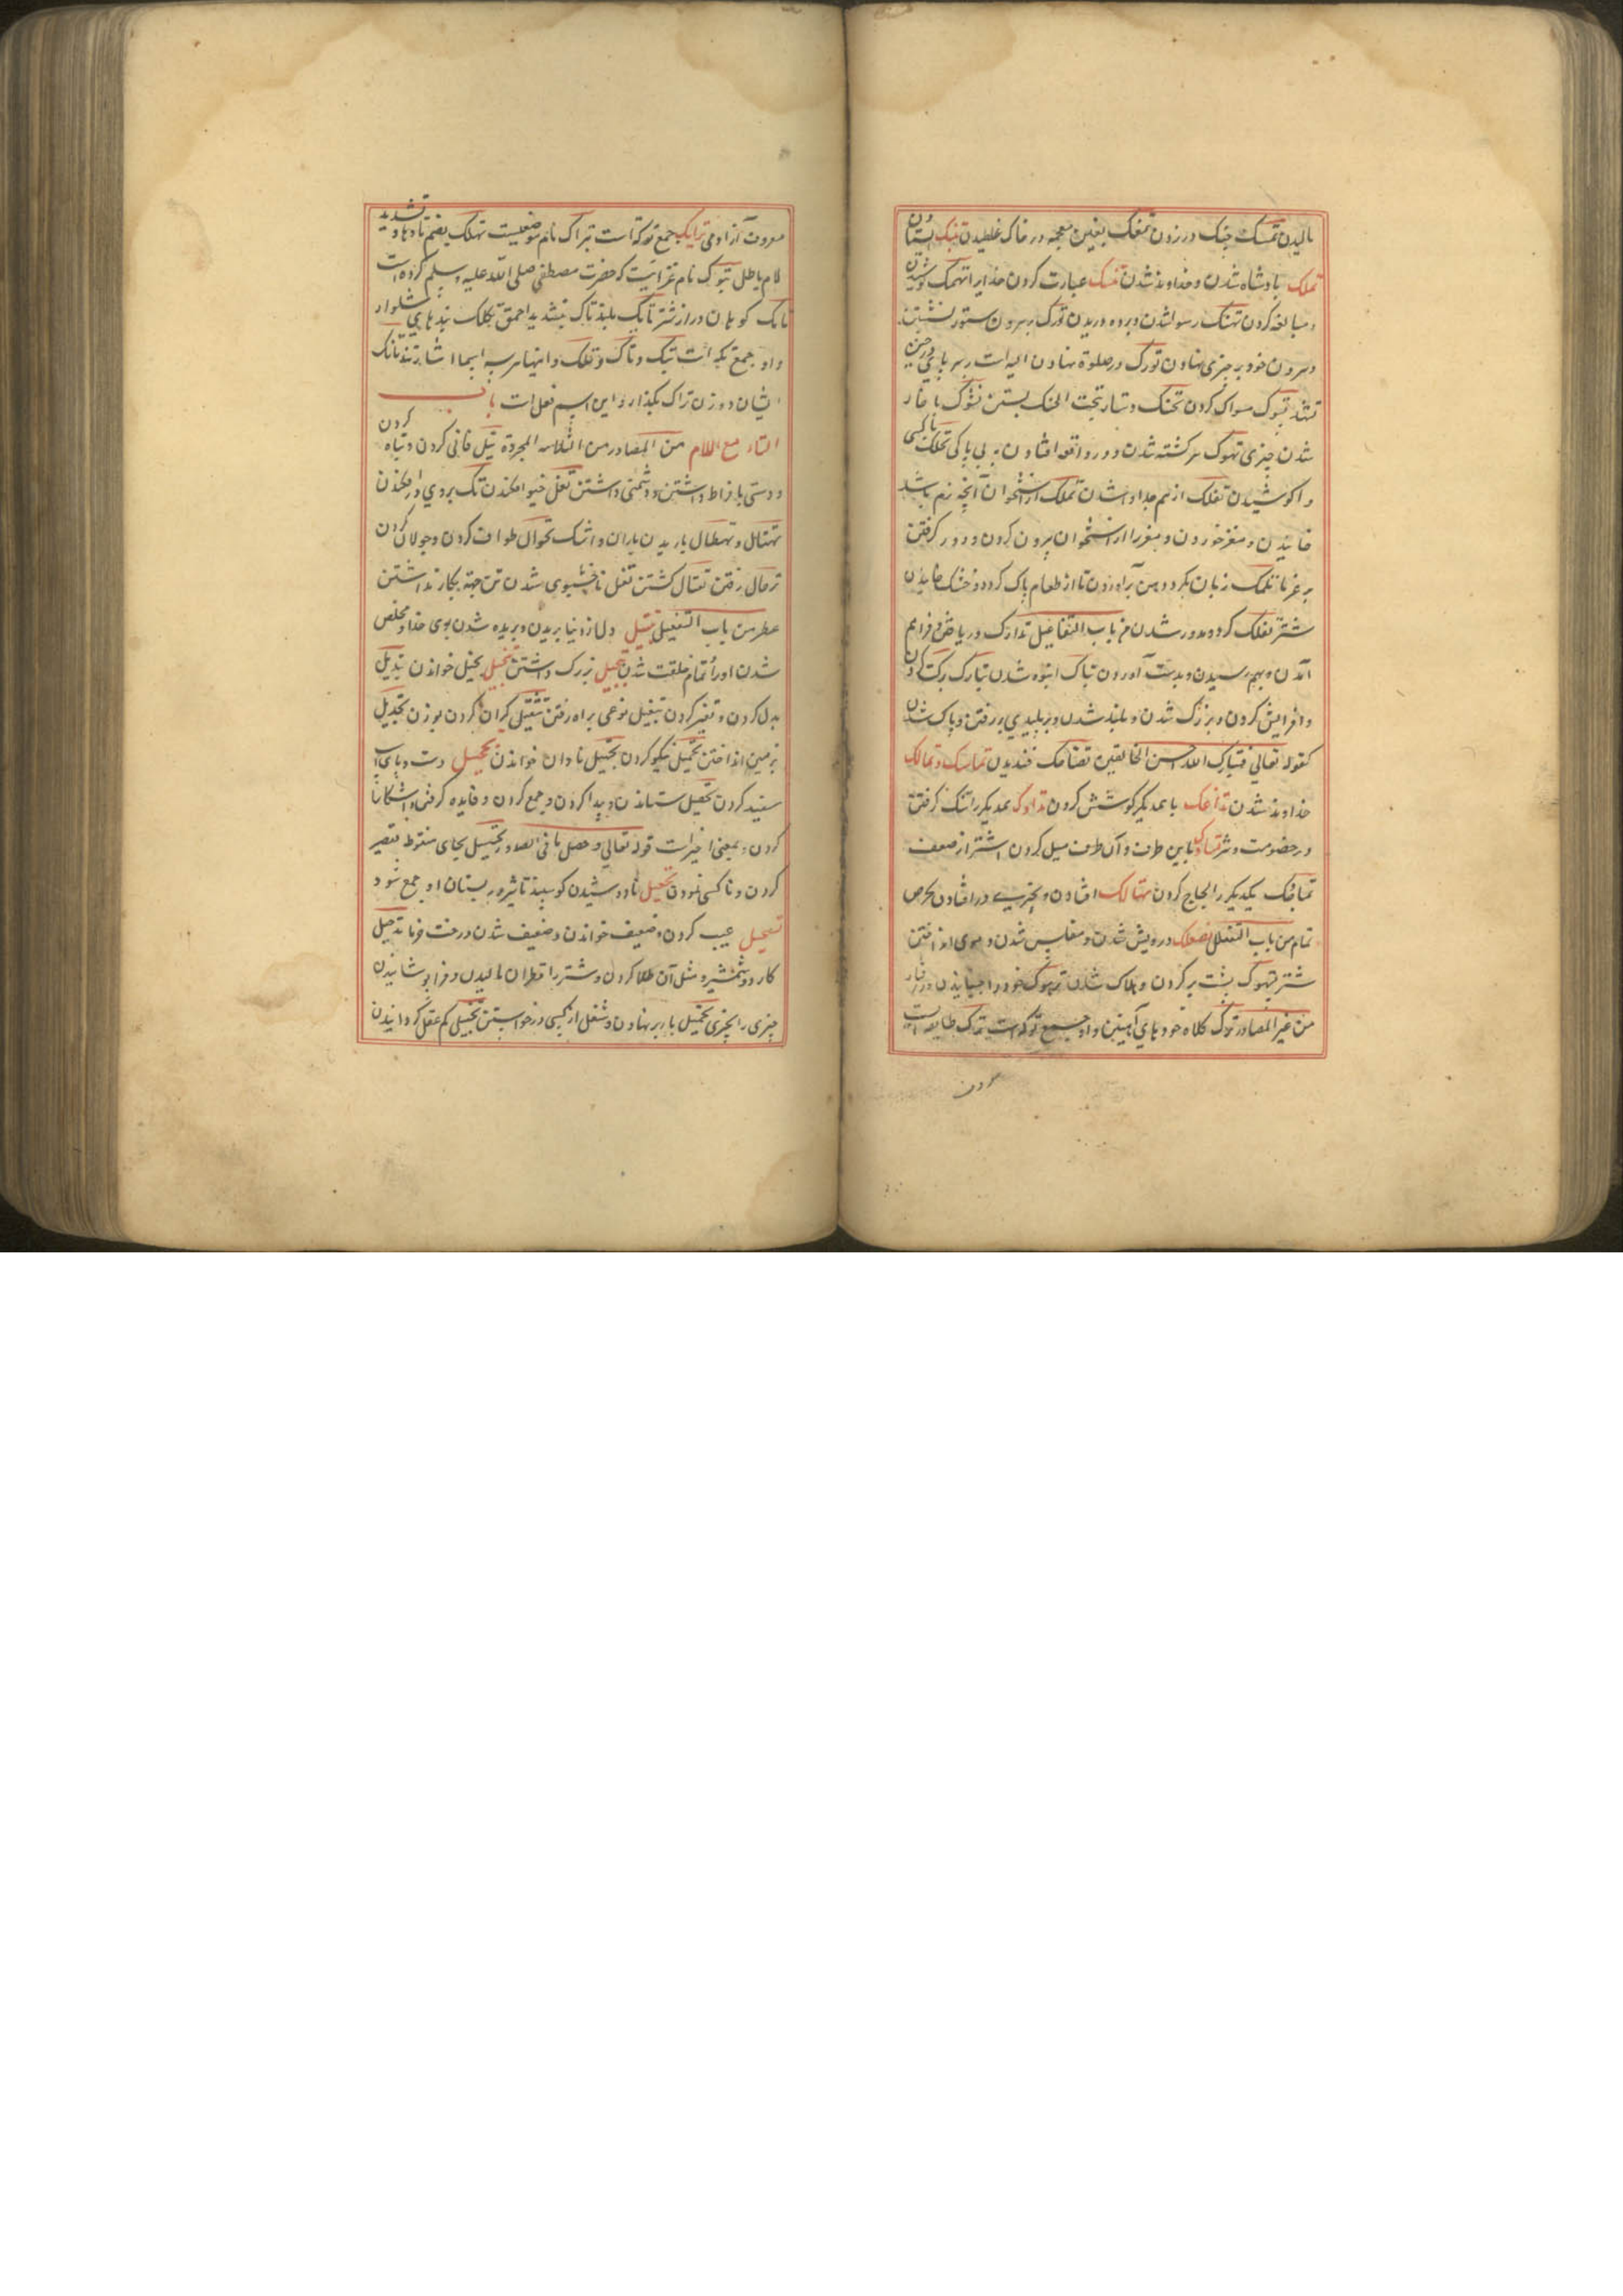 مالیدن تمسک چنک در زدن تمعک بغین معجمه در خاک غلطیدن
تملک پادشاه شدن و خداوند شدن تنسک عبادت کردن خدایرا تهمک کوشیدن
و مبالغه کردن تهتک رسوا شدن و پرده دریدن تورک بر سرون ستور نشستن
و سرون خود بر چیزی نهادن تورک در صلوة نهادن الیه است بر سر پای در حین
تشهد تسوک مسواک کردن تحنک دستار تحت الحنک بستن
شدن چیزی تهوک سرکشته شدن و در واقعه افتادن به بی باکی
وا کوشیدن تفکک از هم جدا شدن تملک از استخوان آنچه نرم باشد
خاییدن و مغز خوردن و مغز را از استخوان برون کردن و دور کرفتن
زبان بکرد دهن برآوردن تا از طعام پاک کردد و خشک خاییدن
شتر تفلک کرد و مدور شدن من باب التفاعل تدارک دریافتن و فراهم
آمدن و بهم رسیدن و بدست آوردن تباک انبوه شدن تبارک برکت کردن
و افزایش کردن و بزرک شدن و بلند شدن و بر بلندی بر رفتن و پاک شدن
کقوله تعالی فتبارک الله احسن الخالقین تضاحک خندیدن تماسک و تمالک
خداوند شدن تداعک با همدیکر کوشش کردن همدیکر را تنک کرفتن
در خصومت و شر تساوک باین طرف و آن طرف میل کردن اشتر از ضعف
تماحک یکدیکر را لجاج کردن تهالک افتادن و بحرص
تمام من باب التفعلل تصعلک درویش شدن و مفلس شدن و موی انداختن
شتر تپهوک پشت بر کردن و هلاک شدن ترهوک خود را جنبانیدن در رفتار
من غیر المصادر ترک کلاه خودهای آهنین و او جمع ترکه است ترک طایفه ایست
کردن
معروف آزاد می ترایک جمع ترکه است تبراک نام موضعیست تهلک بضم تا و ها و تشدید
لام باطل تبوک نام غزاییست که حضرت مصطفی صلی الله علیه و سلم کرده است
تامک کوهان دراز شتر تامک بلند تاک بتشدید احمق تکک بندهای شلوار
و او جمع تکه است تیک و تاک و تلک و اینها هر سه اسماء اشارتند
ایشان و وزن تراک بکذار و این اسم فعل است باب
التاء مع اللام من المصادر من الثلاثیه المجردة تبل فانی کردن و تباه کردن
و دستی بافراط داشتن و دشمنی داشتن تفل خیو افکندن
تهتال و تهطال باریدن باران و اشک تحوال طواف کردن و جولان کردن
ترحال رفتن تقتال کشتن تفل ناخوشبوی شدن تن جهة بکار نداشتن
عطر من باب التفعیل تبتیل دل از دنیا بریدن و بریده شدن بسوی خدا و مخلص
شدن او را و تمام خلقت شدن تبجیل بزرک داشتن تبخیل بخیل خواندن تبدیل
بدل کردن و تغییر کردن تبغیل نوعی براه رفتن تثقیل کران کردن بوزن تجدیل
بزمین انداختن تجمیل نیکو کردن تجهیل نادان خواندن تحجیل دست و پای اسب
سفید کردن تحصیل ستاندن و پیدا کردن و جمع کردن و فایده کرفتن و آشکارا
کردن و بمعنی اخیر است قوله تعالی و حصل ما فی الصدور تخسیل بخای منقوط تقصیر
کردن و ناکسی نمودن تحفیل نادوشیدن کوسپند تا شیر در پستان او جمع شود
عیب کردن و ضعیف خواندن و ضعیف شدن درخت خرما تدجیل
کارد و شمشیر و مثل آن طلا کردن و شتر را قطران مالیدن و فراپوشانیدن
چیزی را بچیزی تحمیل بار بر نهادن و شغل از کسی در خواستن تخبیل کم عقل کردانیدن